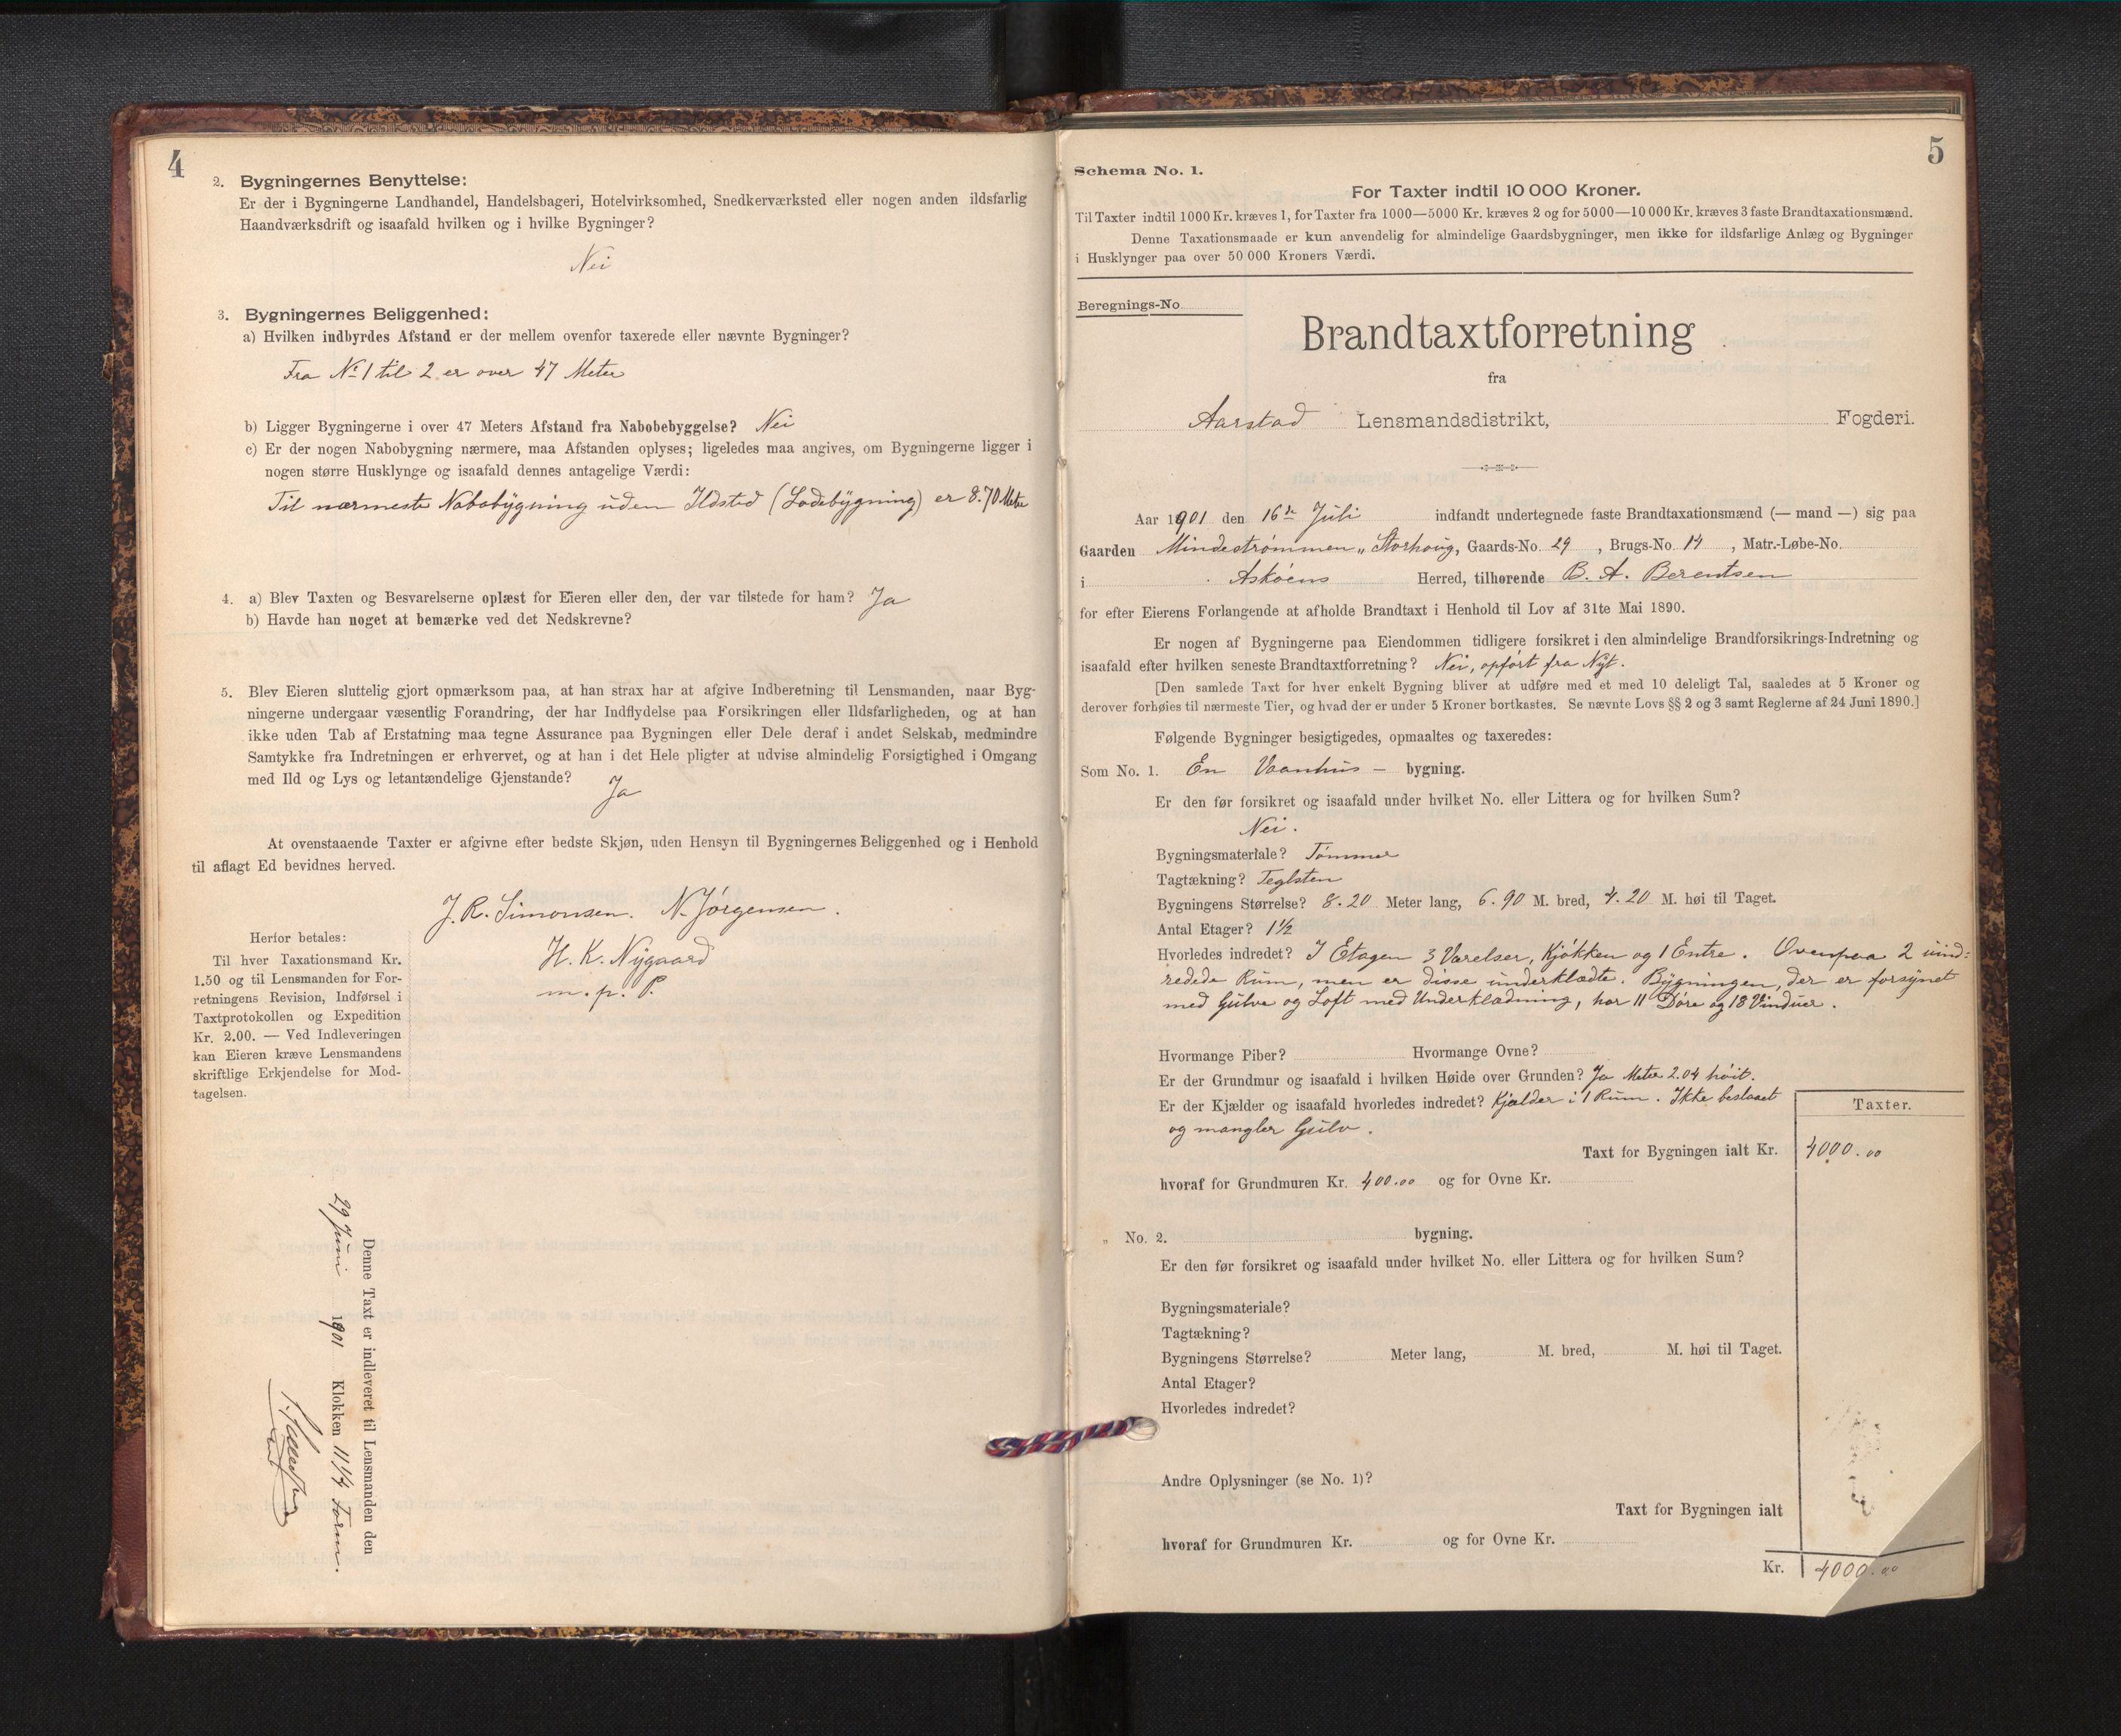 4
2. Bygningernes Benyttelse:
Er der i Bygningerne Landhandel, Handelsbageri, Hotelvirksomhed, Snedkerværksted eller nogen anden ildsfarlig
Haandværksdrift og isaafald hvilken og i hvilke Bygninger?
Nei
3. Bygningernes Beliggenhed:
a) Hvilken indbyrdes Afstand er der mellem ovenfor taxerede eller nævnte Bygninger?
Fra No 1 til 2 er over 47 Meter
b) Ligger Bygningerne i over 47 Meters Afstand fra Nabobebyggelse? Nei
c) Er der nogen Nabobygning nærmere, maa Afstanden oplyses; ligeledes maa angives, om Bygningerne ligger i
nogen større Husklynge og isaafald dennes antagelige Værdi:
Til nærmeste Nabobygning uden Ildsted (Ladebygning) er 8.70 Meter
4. a) Blev Taxten og Besvarelserne oplæst for Eieren eller den, der var tilstede for ham? Ja
b) Havde han noget at bemærke ved det Nedskrevne?
5. Blev Eieren sluttelig gjort opmærksom paa, at han strax har at afgive Indberetning til Lensmanden, naar Byg-
ningerne undergaar væsentlig Forandring, der har Indflydelse paa Forsikringen eller Ildsfarligheden, og at han
ikke uden Tab af Erstatning maa tegne Assurance paa Bygningen eller Dele deraf i andet Selskab, medmindre
Samtykke fra Indretningen er erhvervet, og at han i det Hele pligter at udvise almindelig Forsigtighed i Omgang
med Ild og Lys og letantændelige Gjenstande? Ja
At ovenstaaende Taxter er afgivne efter bedste Skjøn, uden Hensyn til Bygningernes Beliggenhed og i Henhold
til aflagt Ed bevidnes herved.
J. R. Simonsen. N. Jørgensen.
H. K. Nygaard
m. p. P.
Herfor betales:
Til hver Taxationsmand Kr.
1.50 og til Lensmanden for For-
retningens Revision, Indførsel i
Taxtprotokollen og Expedition
Kr. 2.00. — Ved Indleveringen
kan Eieren kræve Lensmandens
skriftlige Erkjendelse for Mod-
tagelsen.
Denne Taxt er indleveret til Lensmanden den
29 Juni 1901 Klokken 11 1/4 Form.
5
Schema No. 1.
For Taxter indtil 10 000 Kroner.
Til Taxter indtil 1000 Kr. kræves 1, for Taxter fra 1000—5000 Kr. kræves 2 og for 5000—10 000 Kr. kræves 3 faste Brandtaxationsmænd.
Denne Taxationsmaade er kun anvendelig for almindelige Gaardsbygninger, men ikke for ildsfarlige Anlæg og Bygninger
i Husklynger paa over 50 000 Kroners Værdi.
Beregnings-No.
Brandtaxtforretning
fra
Aarstad Lensmandsdistrikt, Fogderi.
Aar 1901 den 16de Juli indfandt undertegnede faste Brandtaxationsmænd (— mand —) sig paa
Gaarden Mindestrømmen „Storhoug, Gaards-No. 29, Brugs-No. 14, Matr.-Løbe-No.
i Askøens Herred, tilhørende B. A. Berentsen
for efter Eierens Forlangende at afholde Brandtaxt i Henhold til Lov af 31te Mai 1890.
Er nogen af Bygningerne paa Eiendommen tidligere forsikret i den almindelige Brandforsikrings-Indretning og
isaafald efter hvilken seneste Brandtaxtforretning? Nei, opført fra Nyt.
[Den samlede Taxt for hver enkelt Bygning bliver at udføre med et med 10 deleligt Tal, saaledes at 5 Kroner og
derover forhøies til nærmeste Tier, og hvad der er under 5 Kroner bortkastes. Se nævnte Lovs §§ 2 og 3 samt Reglerne af 24 Juni 1890.]
Følgende Bygninger besigtigedes, opmaaltes og taxeredes:
Som No. 1. En Vaanhus — bygning.
Er den før forsikret og isaafald under hvilket No. eller Littera og for hvilken Sum?
Nei.
Bygningsmateriale? Tømmer
Tagtækning? Teglsten
Bygningens Størrelse? 8.20 Meter lang, 6.90 M. bred, 4.20 M. høi til Taget.
Antal Etager? 1 1/2
Hvorledes indredet? I Etagen 3 Værelser, Kjøkken og 1 Entre. Ovenpaa 2 uind-
redede Rum, men er disse underklædte. Bygningen, der er forsynet
med Gulve og Loft med Underklædning, har 11 Døre og 13 Vinduer.
Hvormange Piber? Hvormange Ovne?
Er der Grundmur og isaafald i hvilken Høide over Grunden? Ja Meter 2.04 høit.
Er der Kjælder og isaafald hvorledes indredet? Kjælder i 1 Rum. Ikke beslaaet
og mangler Gulv.
Taxter.
Taxt for Bygningen ialt Kr. 4000.00
hvoraf for Grundmuren Kr. 400.00 og for Ovne Kr.
„ No. 2. bygning.
Er den før forsikret og isaafald under hvilket No. eller Littera og for hvilken Sum?
Bygningsmateriale?
Tagtækning?
Bygningens Størrelse? Meter lang, M. bred, M. høi til Taget.
Antal Etager?
Hvorledes indredet?
Andre Oplysninger (se No. 1)?
Taxt for Bygningen ialt
hvoraf for Grundmuren Kr. og for Ovne Kr.
Kr. 4000.00